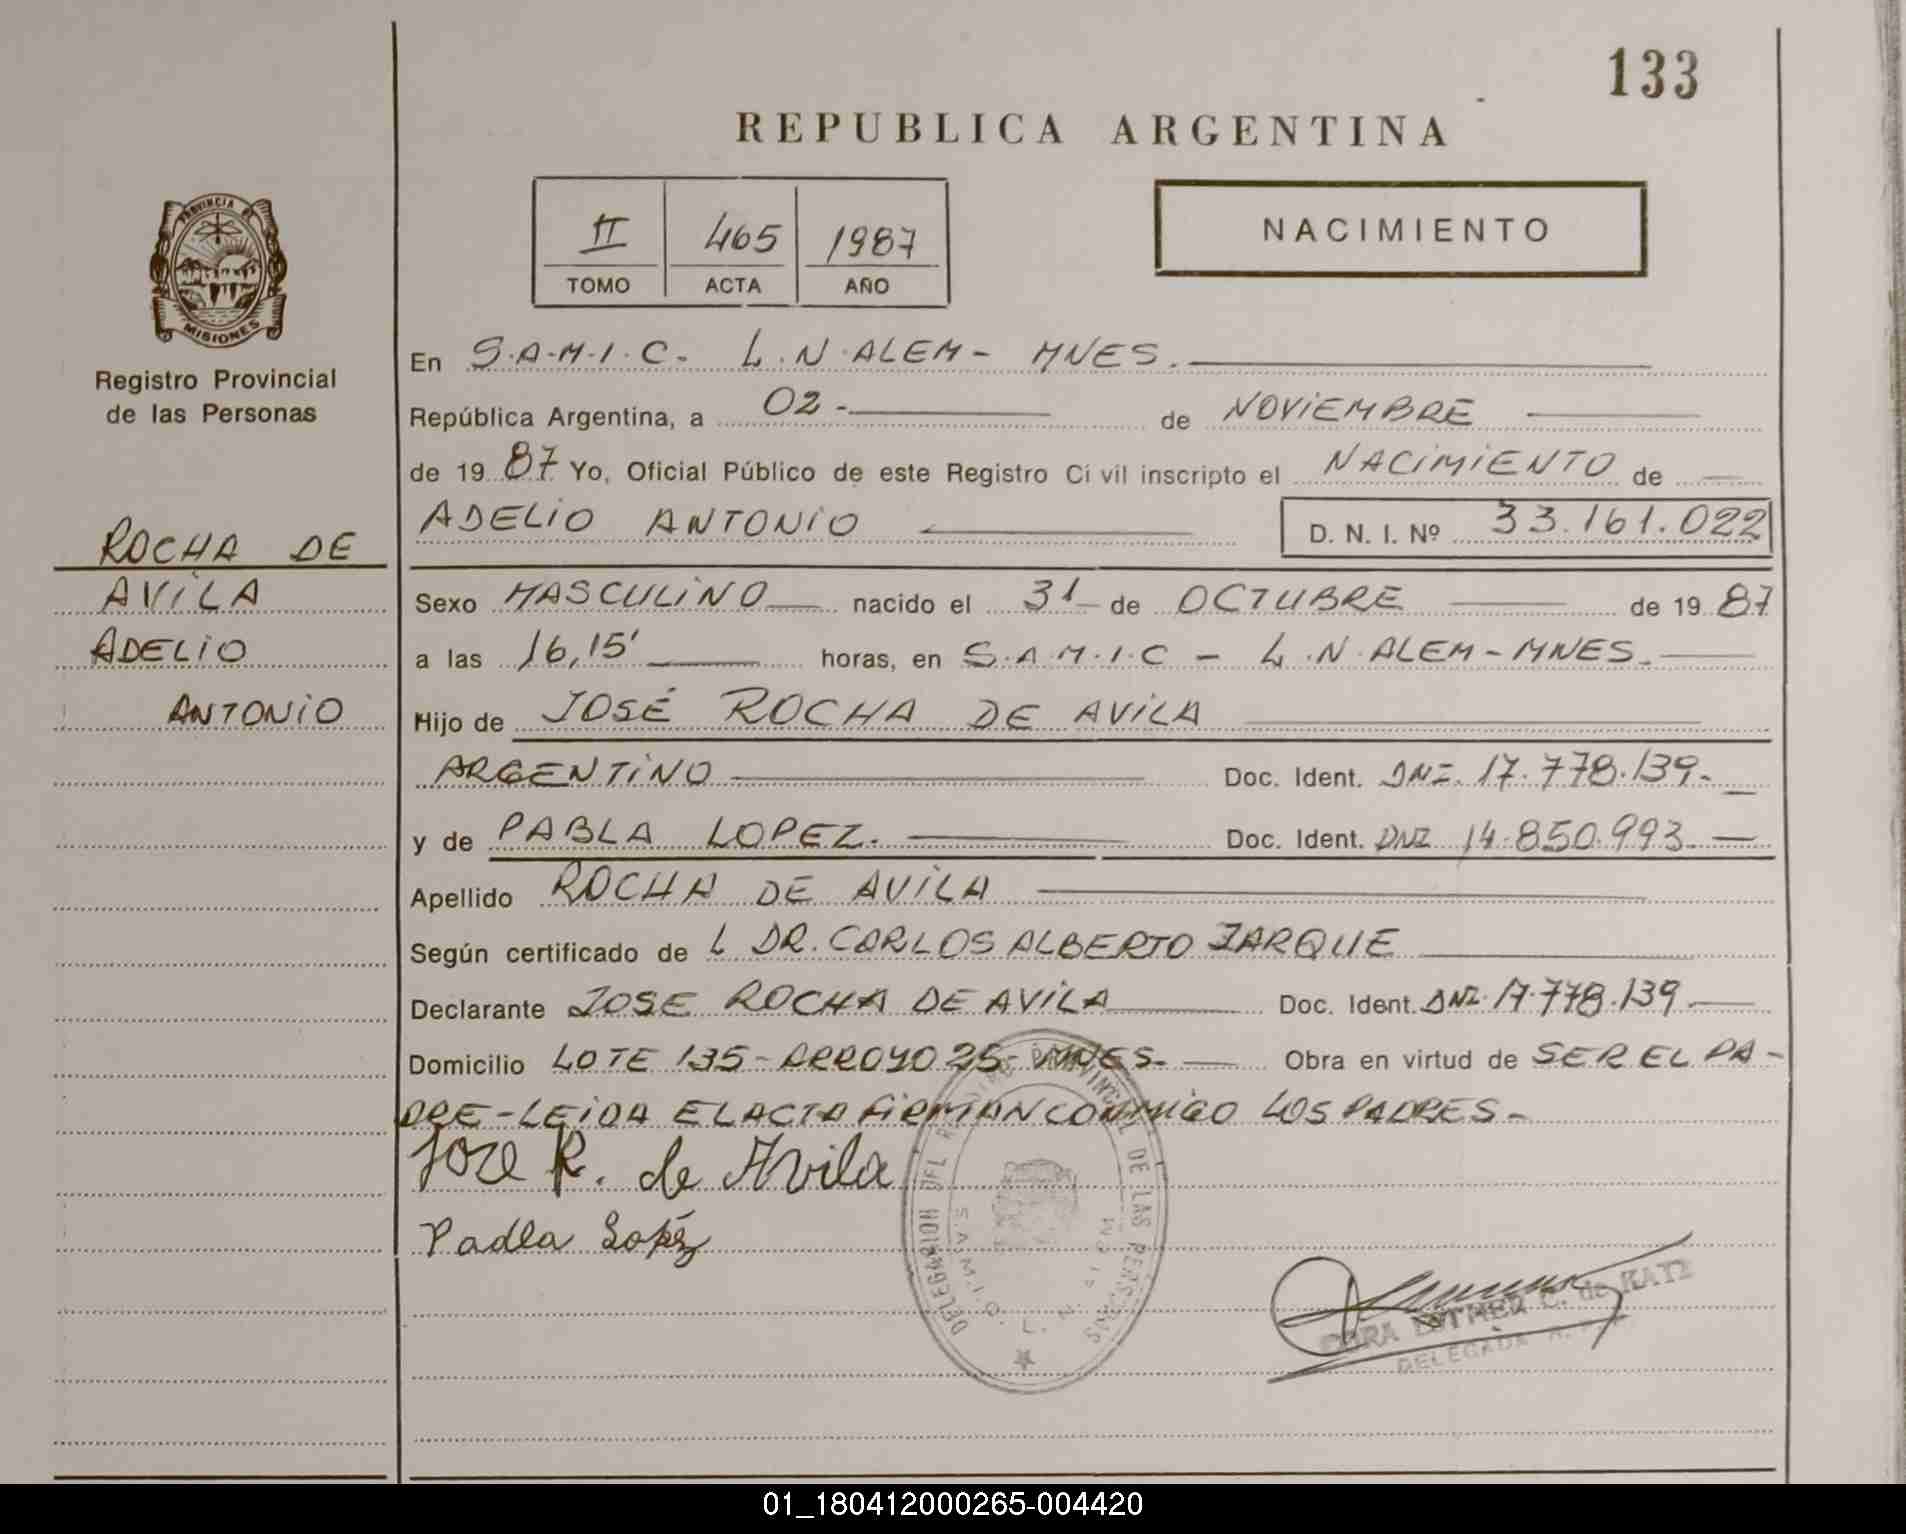 133
REPUBLICA ARGENTINA
PROVINCIA DE
MISIONES
Registro Provincial
de las Personas
II 465 1987
TOMO ACTA AÑO
NACIMIENTO
En S.A.M.I.C. L.N.ALEM- MNES.
República Argentina, a 02- de NOVIEMBRE
de 1987 Yo, Oficial Público de este Registro Civil inscripto el NACIMIENTO de
ADELIO ANTONIO D. N. I. Nº 33.161.022
ROCHA DE
AVILA
ADELIO
ANTONIO
Sexo MASCULINO nacido el 31 de OCTUBRE de 1987
a las 16,15' horas, en S.A.M.I.C - L.N.ALEM-MNES.
Hijo de JOSÉ ROCHA DE AVILA
ARGENTINO Doc. Ident. DNI. 17.778.139.-
y de PABLA LOPEZ. Doc. Ident. DNI 14.850.993.-
Apellido ROCHA DE AVILA
Según certificado de L DR. CARLOS ALBERTO JARQUE
Declarante JOSE ROCHA DE AVILA Doc. Ident. DNI. 17.778.139.-
Domicilio LOTE 135-ARROYO 25- MNES.- Obra en virtud de SER EL PA-
DRE-LEIDA EL ACTA FIRMAN CONMIGO LOS PADRES-
Jose R. de Avila
Pabla Lopéz
DELEGACION DEL REGISTRO PROVINCIAL DE LAS PERSONAS
S.A.M.I.C. L. N.
ESTHER C. de KATZ
DELEGADA
01_180412000265-004420